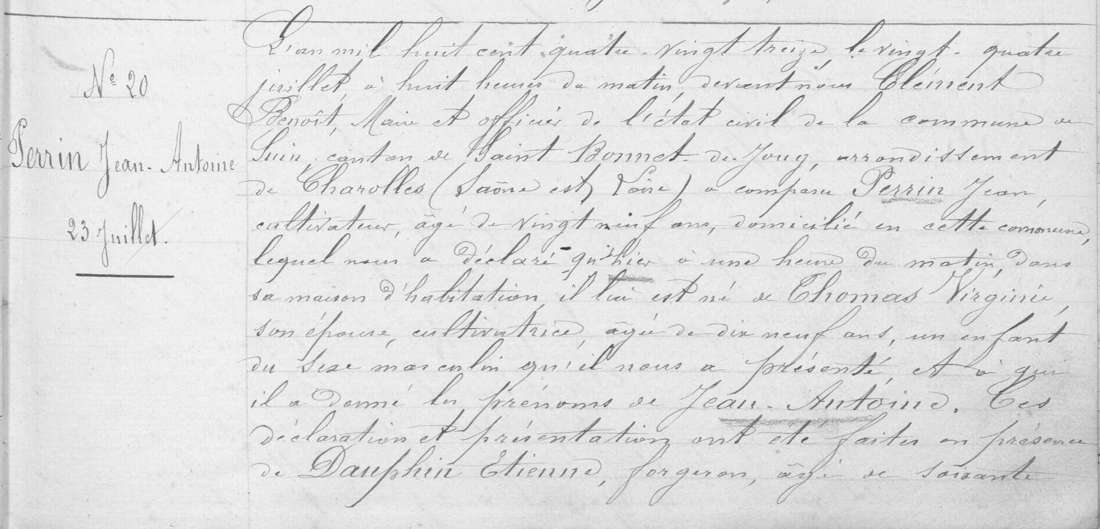 Nº 20
Perrin Jean-Antoine
23 Juillet.
L'an mil huit cent quatre-vingt treize, le vingt-quatre
juillet, à huit heures du matin, devant nous Clément
Benoît, Maire et officier de l'état civil de la commune de
Suin, canton de Saint Bonnet-de-Joug, arrondissement
de Charolles (Saône est Loire) a comparu Perrin Jean,
cultivateur, âgé de vingt neuf ans, domicilié en cette commune,
lequel nous a déclaré qu'hier à une heure du matin, dans
sa maison d'habitation, il lui est né de Thomas Virginie,
son épouse, cultivatrice, âgée de dix neuf ans, un enfant
du sexe masculin qu'il nous a présenté et à qui
il a donné les prénoms de Jean-Antoine. Ces
déclaration et présentation ont été faites en présence
de Dauphin Etienne, forgeron, âgé de soixante